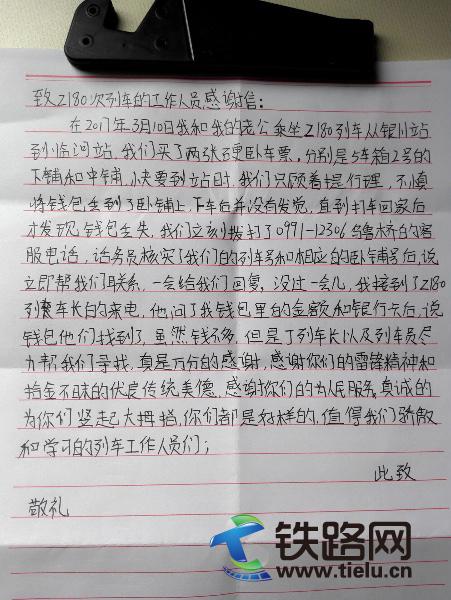 致Z180次列车的工作人员感谢信:
在2017年3月10日我和我的老公乘坐Z180列车从银川站
到临河站,我们买了两张硬卧车票,分别是5车箱2号的
下铺和中铺,快要到站时,我们只顾着提行理,不慎
将钱包丢到了卧铺上,下车后并没有发觉,直到打车回家后
才发现钱包丢失,我们立刻拨打了0971-12306乌鲁木桥的客
服电话,话务员核实了我们的列车号和相应的卧铺号后,说
立即帮我们联系,一会给我们回复,没过一会儿,我接到了Z180
列车长的来电,他问了我钱包里的金额和银行卡后,说
钱包他们找到了,虽然钱不多,但是丁列车长以及列车员尽
力帮我们寻找,真是万分的感谢,感谢你们的雷锋精神和
拾金不昧的优良传统美德,感谢你们的为民服务,真诚的
为你们竖起大拇指,你们都是好样的,值得我们骄傲
和学习的列车工作人员们;
此致
敬礼
铁路网
www.tielu.cn